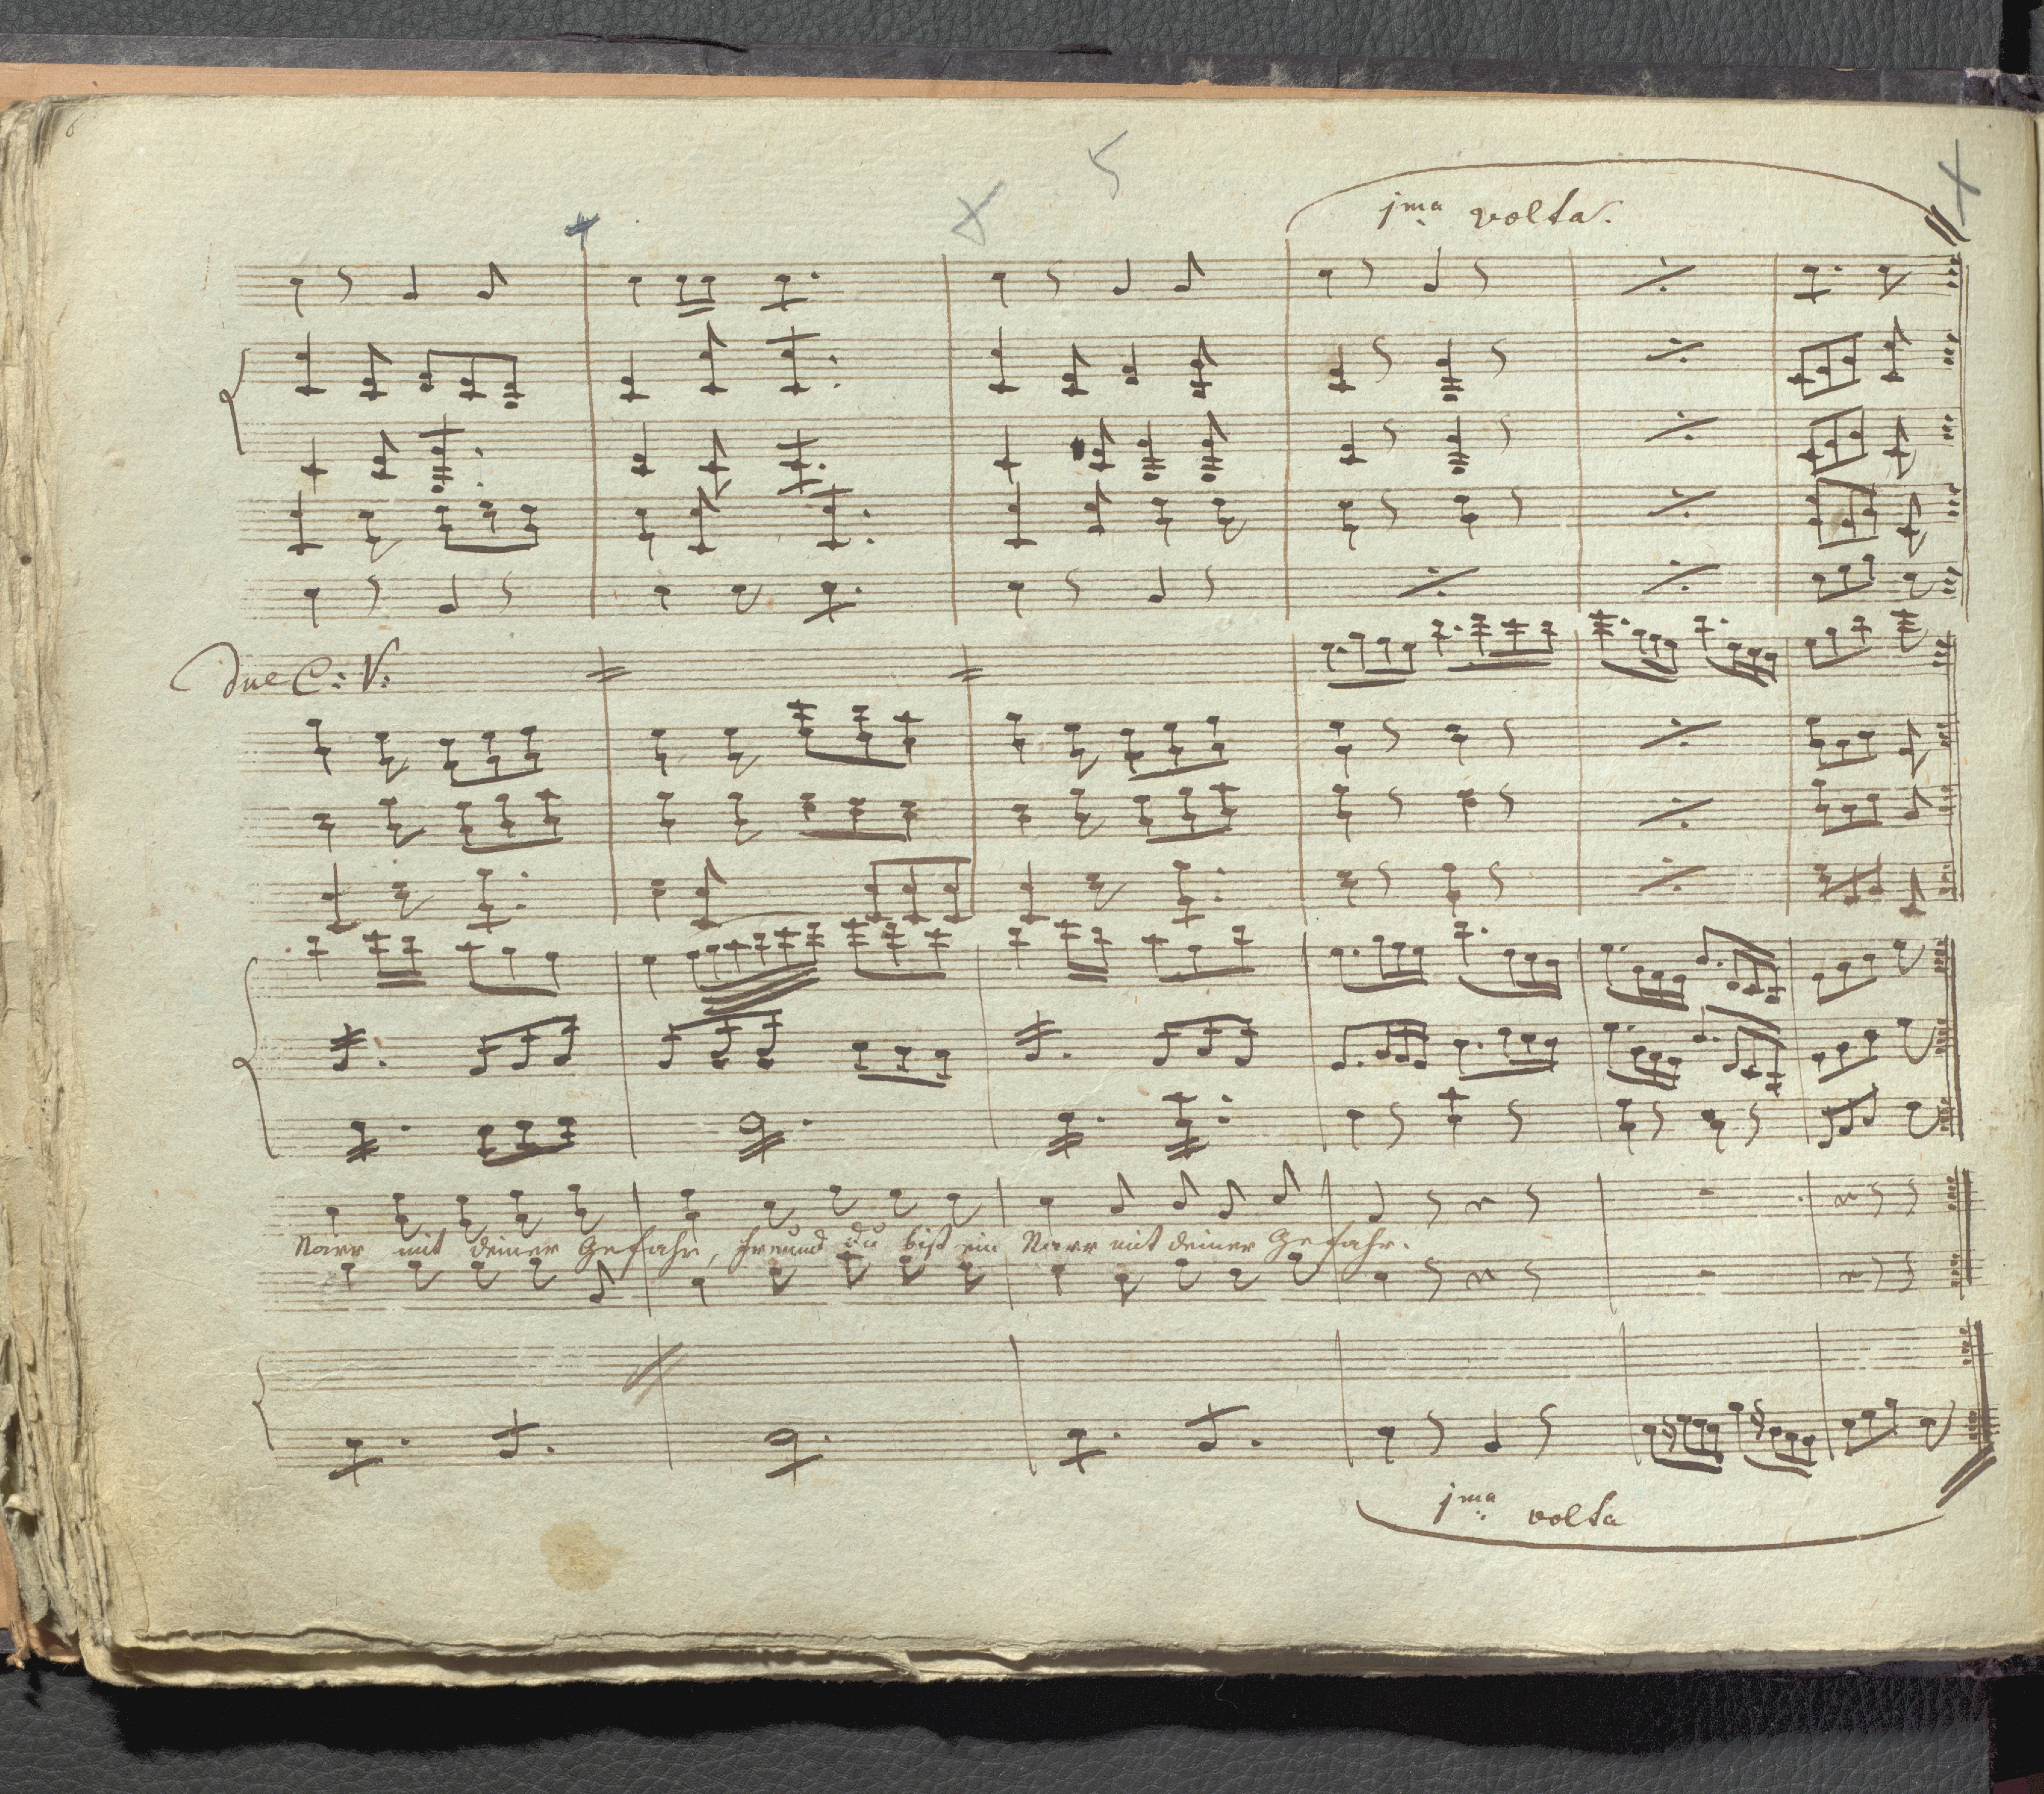 6
5
jma volta.
Due C: V:
Narr mit deiner Gefahr, freund du bist ein Narr mit deiner Gefahr.
jma volta